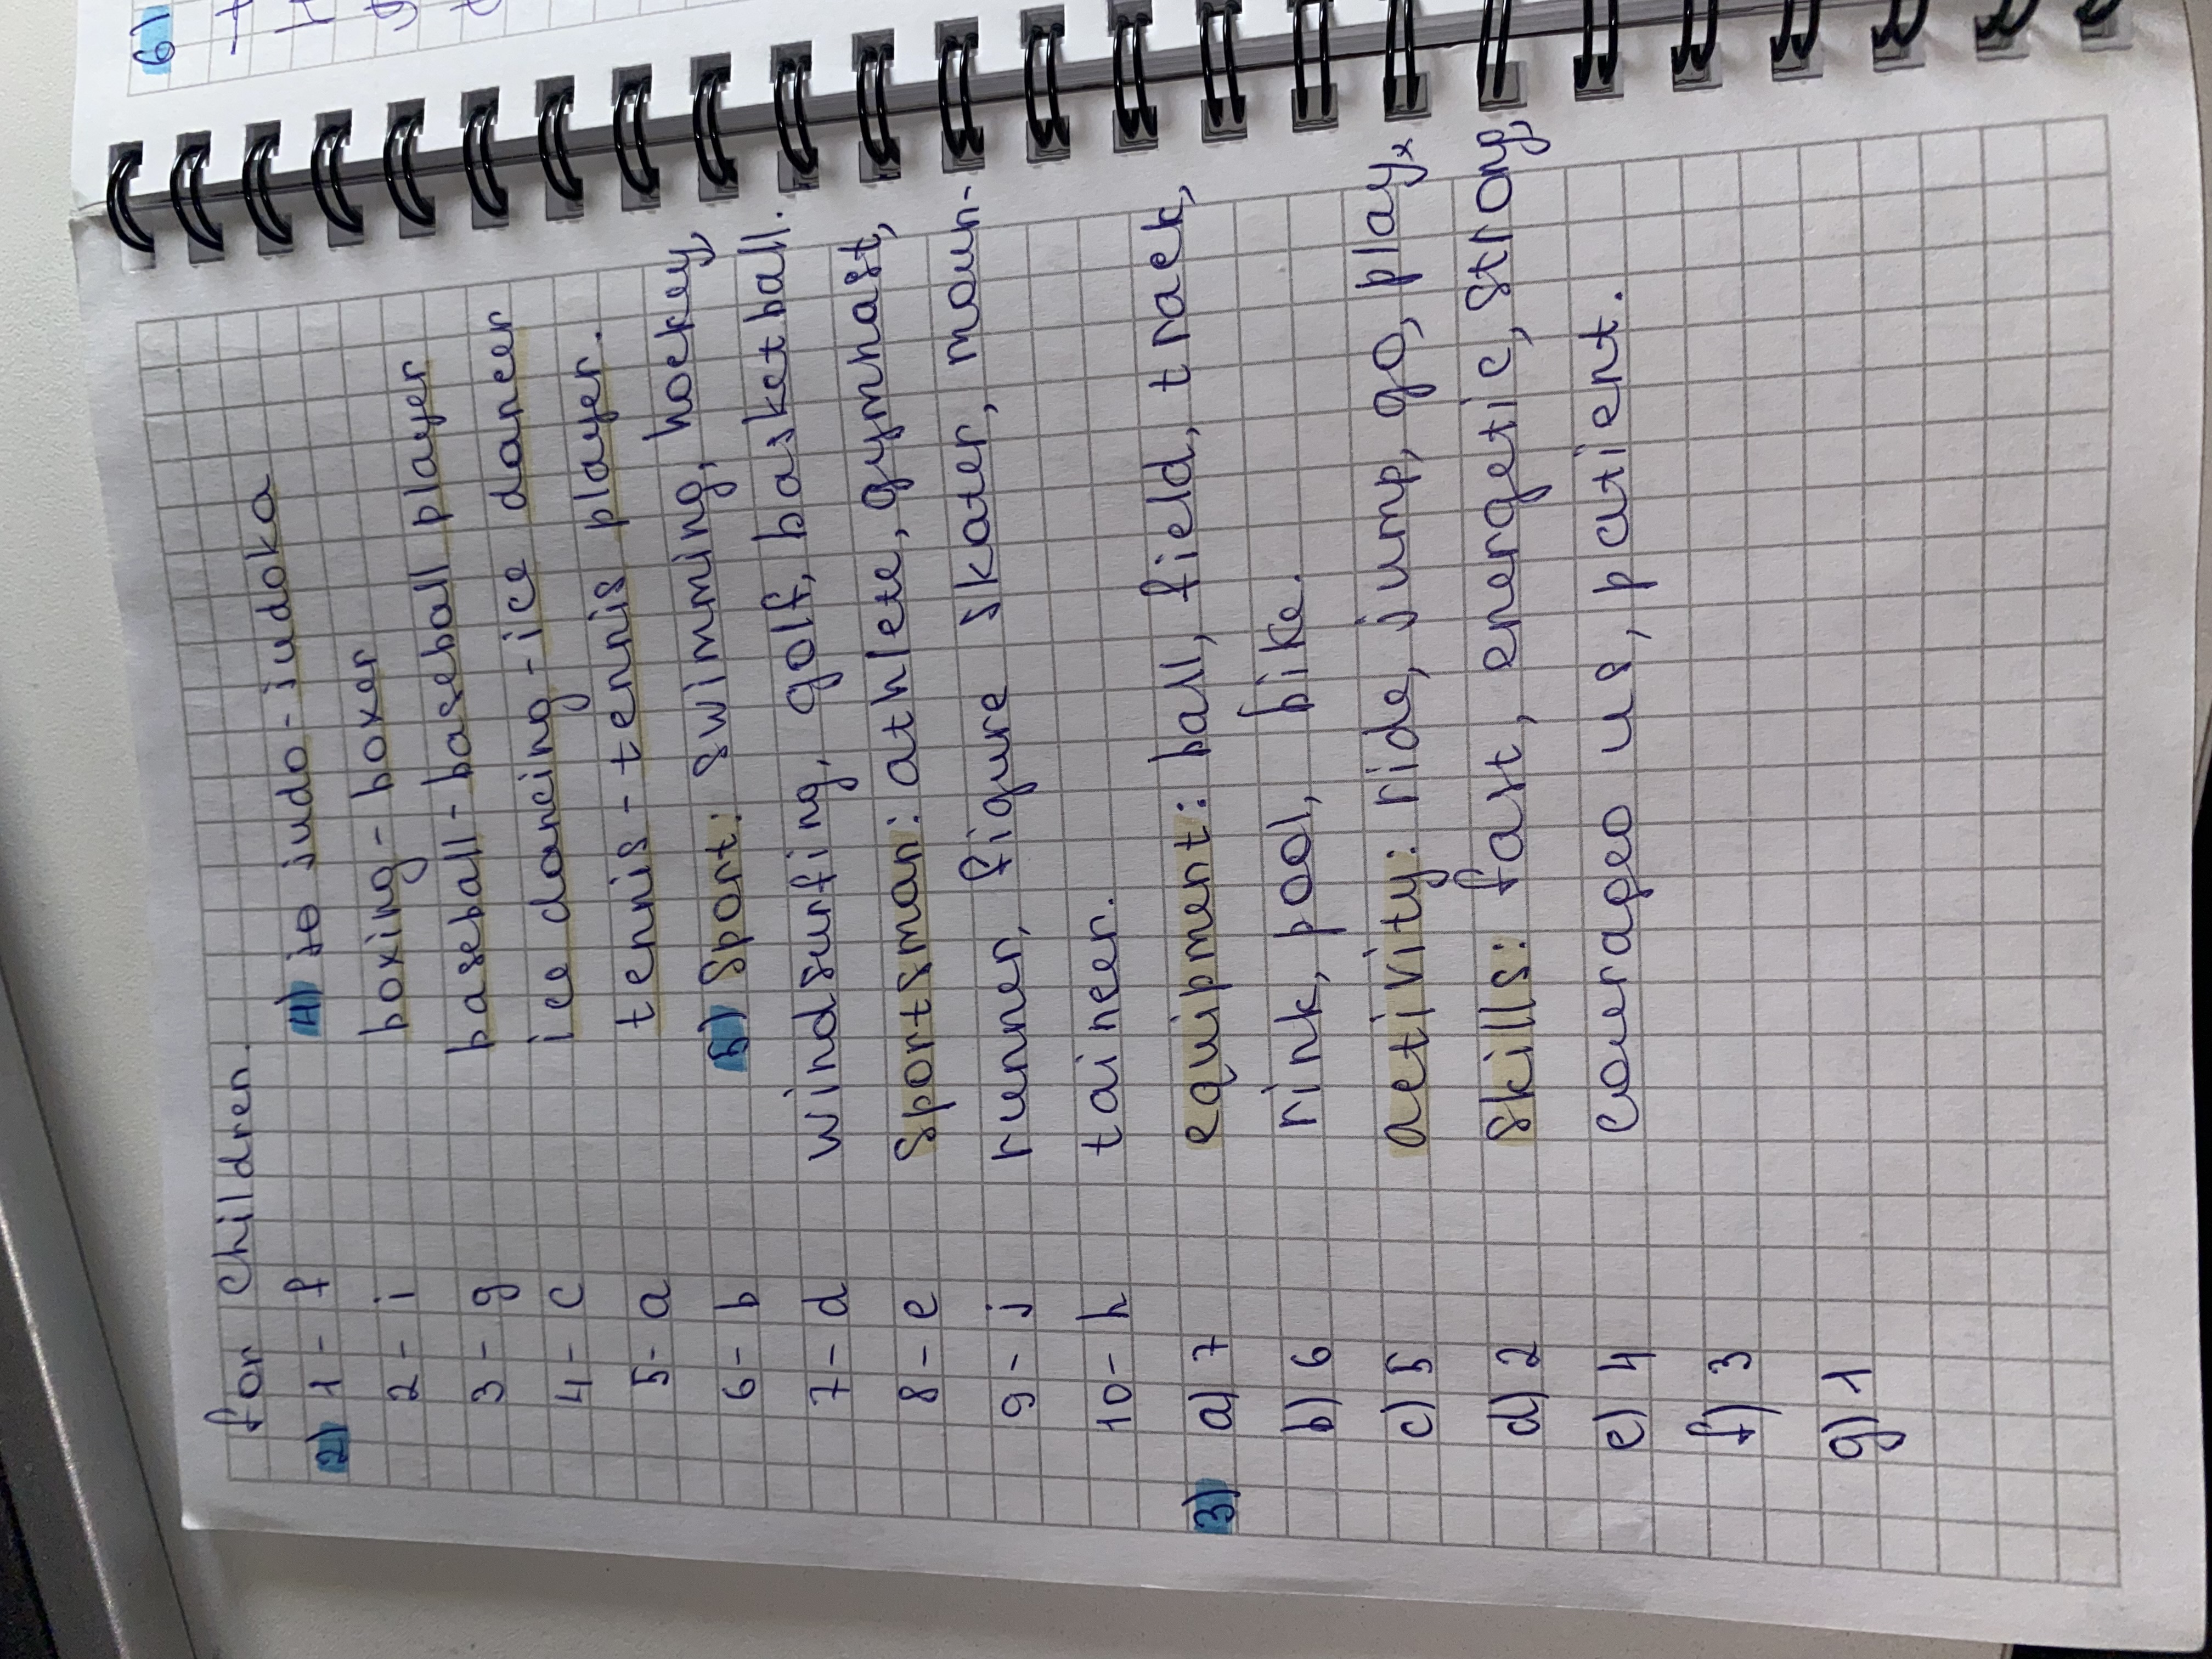 for children.
2) 1 - f
2 - i
3 - g
4 - c
5 - a
6 - b
7 - d
8 - e
9 - j
10 - h
3) a) 7
b) 6
c) 5
d) 2
e) 4
f) 3
g) 1
4) judo - judoka
boxing - boxer
baseball - baseball player
ice dancing - ice dancer
tennis - tennis player.
5) Sport: swimming, hockey,
windsurfing, golf, basketball.
Sportsman: athlete, gymnast,
runner, figure skater, moun-
taineer.
equipment: ball, field, track,
rink, pool, bike.
activity: ride, jump, go, play
Skills: fast, energetic, strong,
courageous, patient.
6)